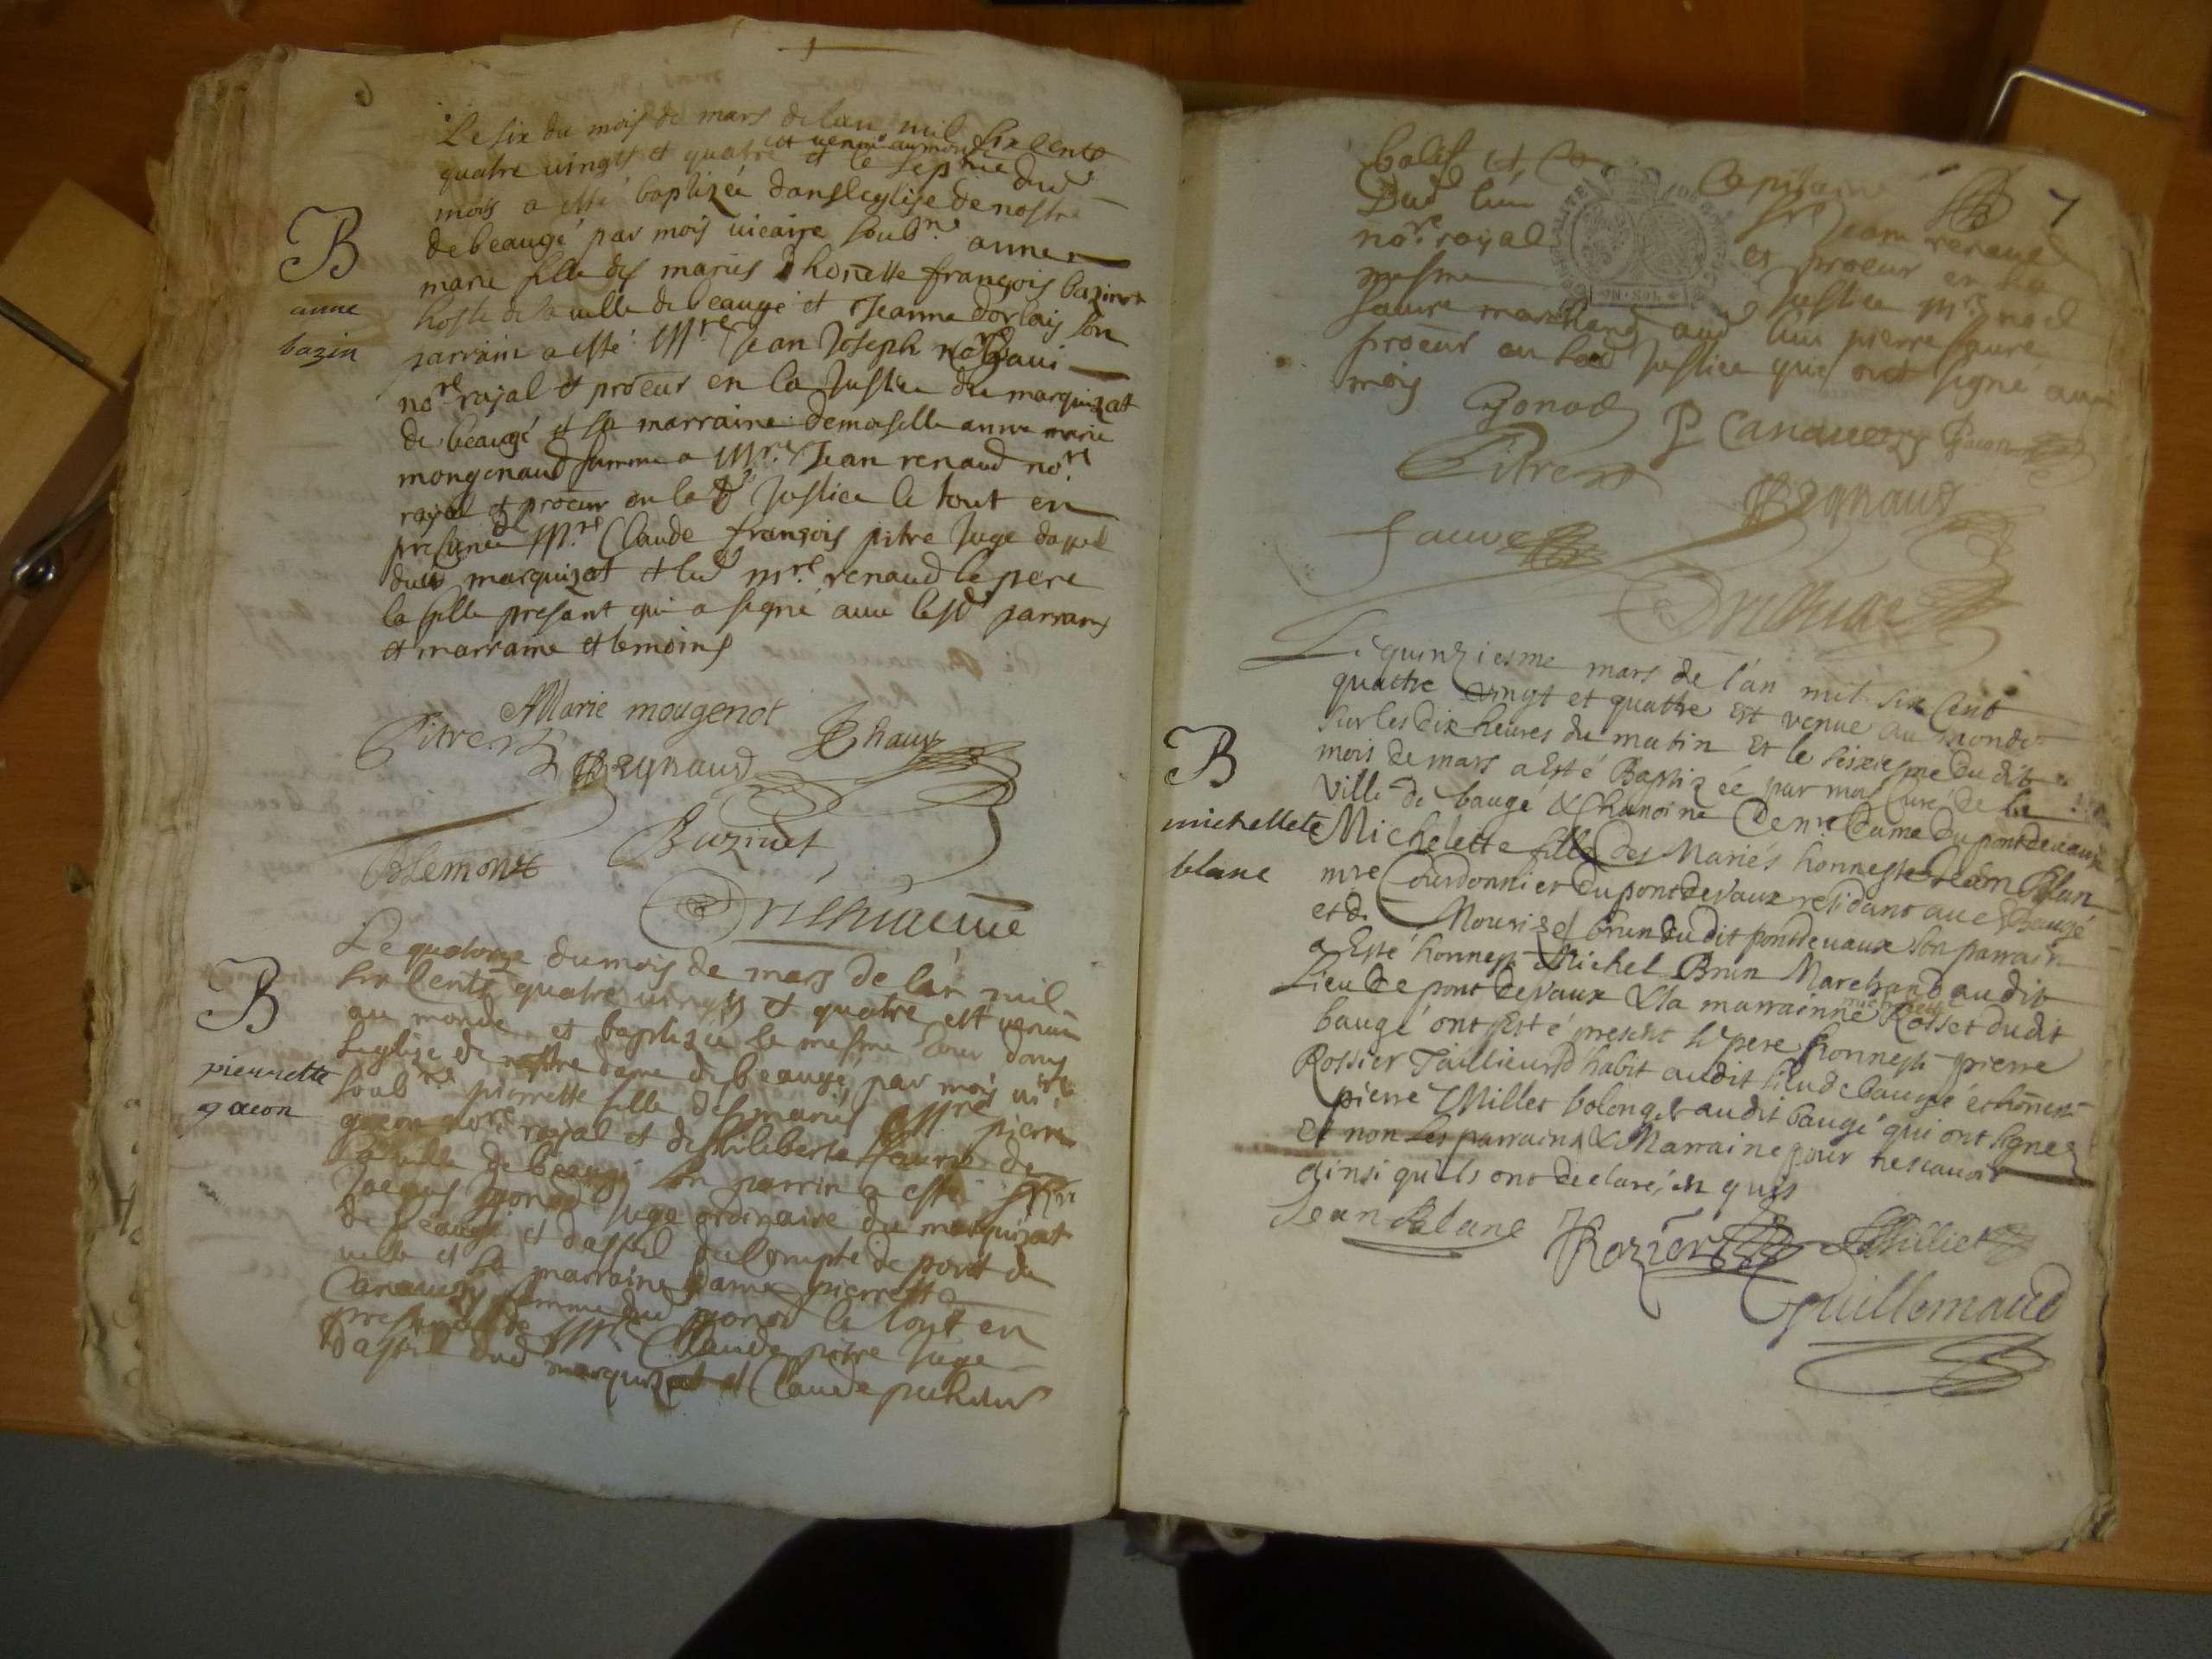 Le six du mois de mars de lan mil six cents
quatre vingts et quatre et venue au monde et le sepme dud
mois a esté baptizée dans leglise de nostre
de beaugé par mois vicaire soubne. anne
marie fille des mariés honeste françois bazinet
hoste de la ville de beaugé et Jeanne dorlais son
parrain a esté Mre Jean Joseph
nore royal et procur en la Justice du marquizat
de beaugé et sa marraine demoiselle anne marie
mongenaud femme a Mre. Jean renaud nore
royal et procur en lad Justice le tout en
presence Mre Claude françois pitre Juge dappel
dud marquizat et lud mre. renaud le pere
la fille presant qui a signé avec lesd parrain
et marraine et temoins
B
anne
bazin
Marie mougenot
Pitre
Regnaud
Buzinet
Le quatorze du mois de mars de lan mil
six cents quatre vingts et quatre est venue
au monde et baptizée le mesme Jour dans
leglise de nostre dame de beaugé par mois vire
soubne pierrette fille des mariés Mre pierre
gacon nore royal et de philiberte faure de
la ville de beaugé son parrin a esté
Jacques gonod Juge ordinaire du marquizat
de beaugé et dappel du Compte de pont de
velle et sa marraine dame pierrette
Canauery femme dud gonod le tout en
presence de Mre Claude pitre Juge
dappel dud marquizat et Claude
B
pierrette
gacon
7
Capitaine
Dud lieu Sre Jean renaud
nore. royal et procur en la
mesme Justice Mre noel
faure marchand aud lieu pierre faure
procur en lad Justice qui ont signé avec
mois
Gonod P Canauery Gacon
Pitre
Regnaud
faure
Le quinziesme mars de l'an mil six cent
quattre vingt et quattre est venue au monde
sur les dix heures du matin Et le seiziesme du dit
mois de mars a Esté Baptizée par moi Curé de la
ville de baugé & Chanoine de nre Dame du pont de vaux
Michelette fille des Mariés honneste Jean Blan
mre Courdonnier du pont de Vaux residant au baugé
et d. brun du dit pont de vaux son parrain
a Esté honnest Michel Brun Marchand au dit
Lieu de pont de Vaux & sa marrainne Rosset du dit
baugé ont Esté present le pere honnest pierre
Rossier Taillieur d'habit au dit lieu de baugé et honnest
pierre Millet bolonger au dit baugé qui ont signes
Et non les parrains & Marraine pour ne scavoir
ainsi qu'ils ont declaré, en quis
B
michellete
blanc
Jean Blanc Rozier Milliet
Guillemaud